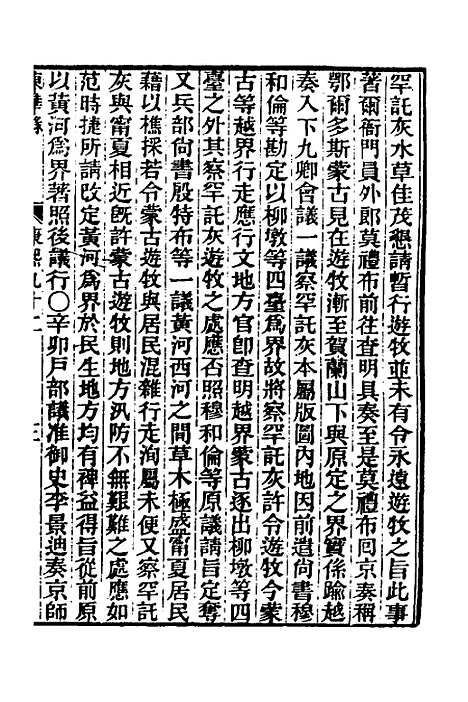 罕託灰水草佳茂懇請暫行遊牧並未有令永遠遊牧之旨此事
著爾衙門員外郎莫禮布前往查明具奏至是莫禮布回京奏稱
鄂爾多斯蒙古見在遊牧漸至賀蘭山下與原定之界實係踰越
奏入下九卿會議一議察罕託灰本屬版圖內地因前遣尚書穆
和倫等勘定以柳墩等四臺爲界故將察罕託灰許令遊牧今蒙
古等越界行走應行文地方官卽查明越界蒙古逐出柳墩等四
臺之外其察罕託灰遊牧之處應否照穆和倫等原議請旨定奪
又兵部尚書殷特布等一議黃河西河之間草木極盛甯夏居民
藉以樵採若令蒙古遊牧與居民混雜行走洵屬未便又察罕託
灰與甯夏相近旣許蒙古遊牧則地方汛防不無艱難之處應如
范時捷所請改定黃河爲界於民生地方均有裨益得旨從前原
以黃河爲界著照後議行〇辛卯戶部議准御史李景迪奏京師
東華錄 康熙九十二